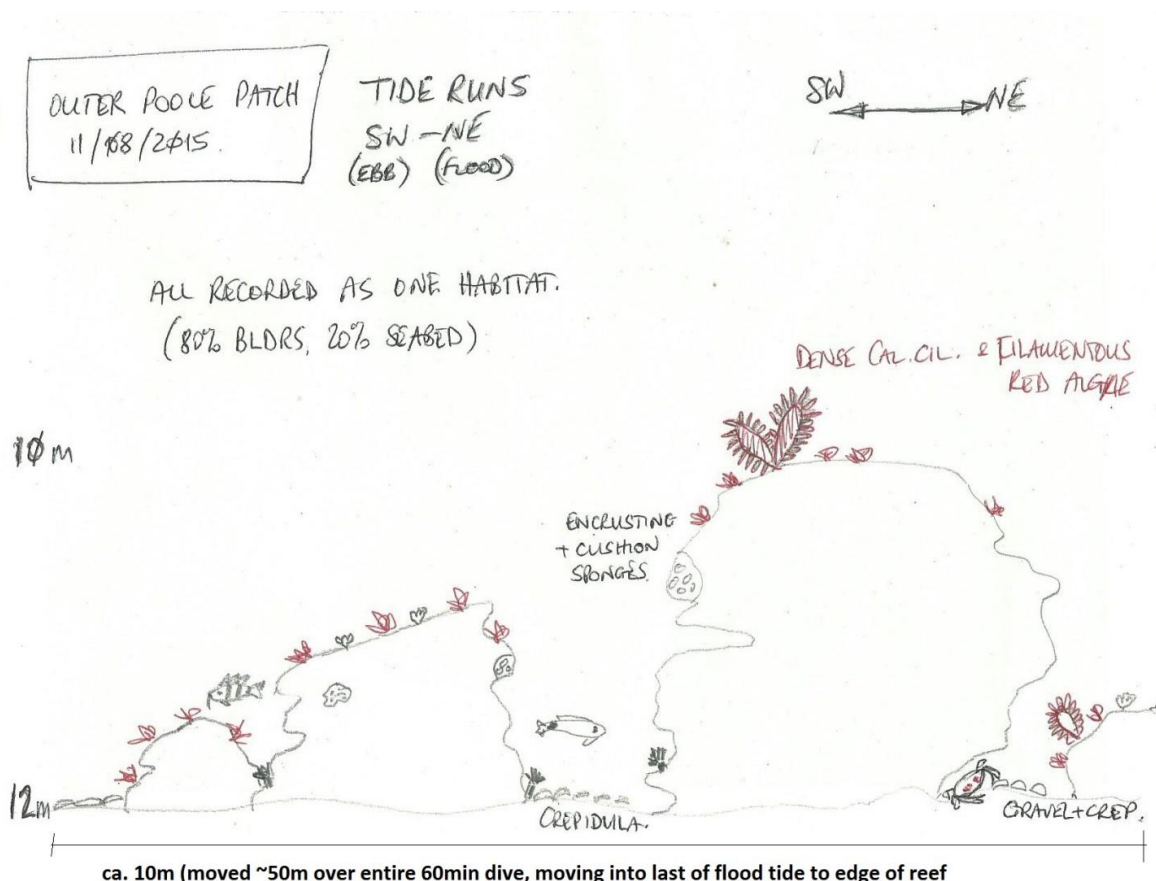 OUTER POOLE PATCH
11/08/2015.
TIDE RUNS
SW - NE
(EBB) (FLOOD)
SW NE
ALL RECORDED AS ONE HABITAT.
(80% BLDRS, 20% SEABED)
DENSE CAL.CIL. & FILAMENTOUS
RED ALGAE
10m
ENCRUSTING
+ CUSHION
SPONGES.
12m
CREPIDULA.
GRAVEL+CREP.
ca. 10m (moved ~50m over entire 60min dive, moving into last of flood tide to edge of reef